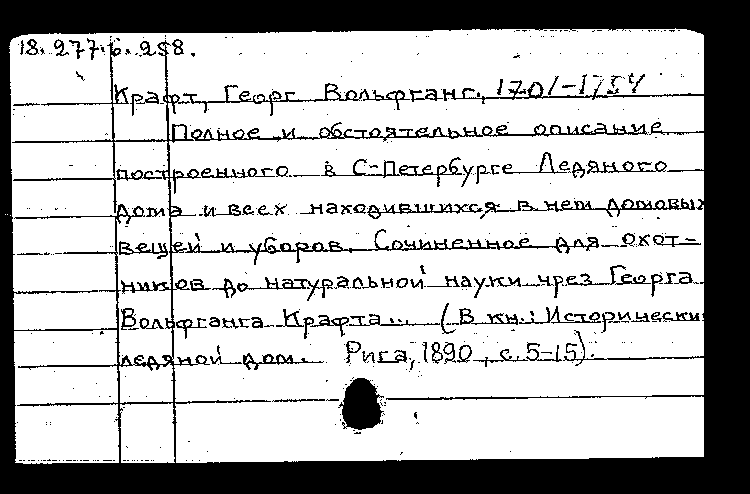 18.277.6.258.
Крафт, Георг Вольфганг., 1701-1754
Полное и обстоятельное описание
построенного в С-Петербурге Ледяного
дома и всех находившихся в нем домовых
вещей и уборов. Сочиненное для охот-
ников до натуральной науки чрез Георга
Вольфганга Крафта... (В кн.: Исторически
ледяной дом. Рига, 1890, с. 5-15).